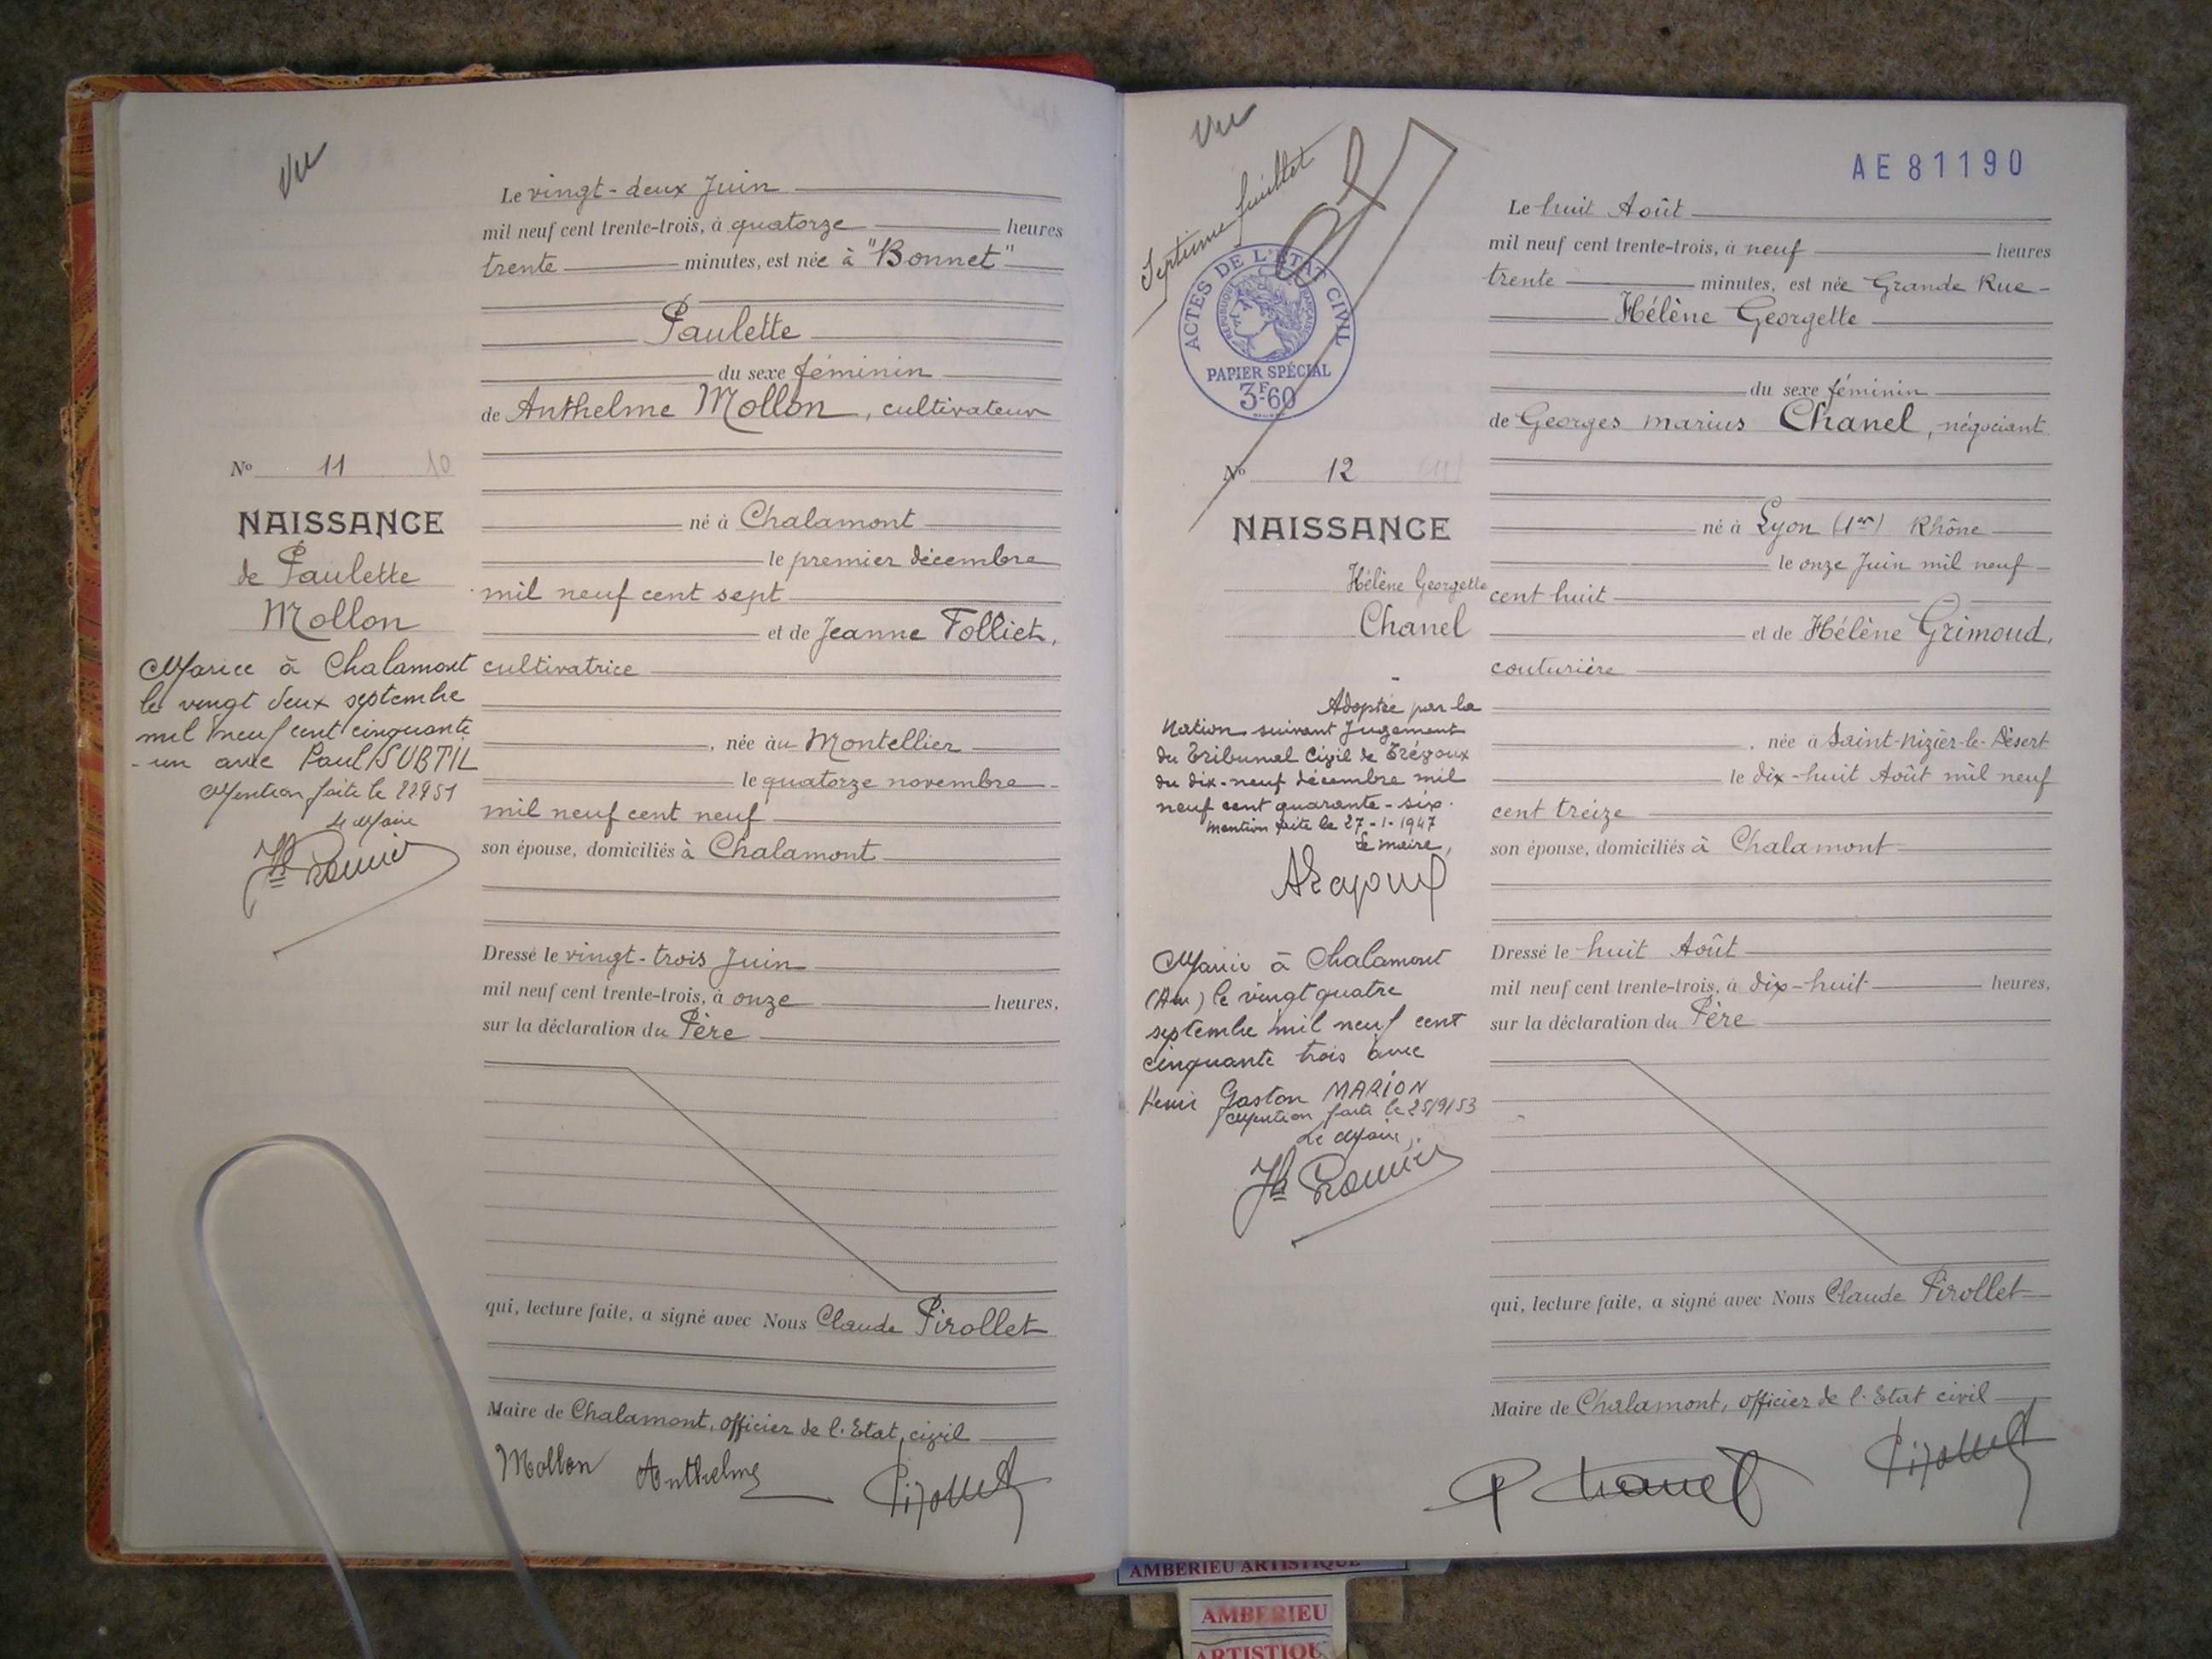 Vu
Le vingt-deux Juin
mil neuf cent trente-trois, à quatorze heures
trente minutes, est née à "Bonnet"
Paulette
du sexe féminin
de Anthelme Mollon, cultivateur
N° 11 10
né à Chalamont
NAISSANCE
le premier décembre
de Paulette
mil neuf cent sept
Mollon
et de Jeanne Folliet,
cultivatrice
Mariée à Chalamont
le vingt deux septembre
mil neuf cent cinquante
-un avec Paul SUBTIL
Mention faite le 22951
Le Maire
née au Montellier
le quatorze novembre
mil neuf cent neuf
son épouse, domiciliés à Chalamont
Dressé le vingt-trois Juin
mil neuf cent trente-trois, à onze heures,
sur la déclaration du Père
qui, lecture faite, a signé avec Nous Claude Pirollet
Maire de Chalamont, officier de l'Etat civil
Mollon Anthelme Pirollet
Vu
Septième feuillet
AE 81190
ACTES DE L'ÉTAT CIVIL
RÉPUBLIQUE FRANÇAISE
PAPIER SPÉCIAL
3F60
Le huit Août
mil neuf cent trente-trois, à neuf heures
trente minutes, est née Grande Rue
Hélène Georgette
du sexe féminin
de Georges Marius Chanel, négociant
N° 12 (11)
né à Lyon (1er) Rhône
NAISSANCE
le onze Juin mil neuf
Hélène Georgette
cent huit
Chanel
et de Hélène Grimoud,
couturière
Adoptée par la
Nation suivant Jugement
du Tribunal Civil de Trévoux
du dix-neuf décembre mil
neuf cent quarante-six.
Mention faite le 27-1-1947
Le maire,
née à Saint-Nizier-le-Désert
le dix-huit Août mil neuf
cent treize
son épouse, domiciliés à Chalamont
Mariée à Chalamont
(Ain) le vingt quatre
septembre mil neuf cent
cinquante trois avec
Henri Gaston MARION
Mention faite le 25/9/53
Le Maire,
Dressé le huit Août
mil neuf cent trente-trois, à dix-huit heures,
sur la déclaration du Père
qui, lecture faite, a signé avec Nous Claude Pirollet
Maire de Chalamont, officier de l'Etat civil
Chanel Pirollet
AMBERIEU ARTISTIQUE
AMBERIEU
ARTISTIQUE